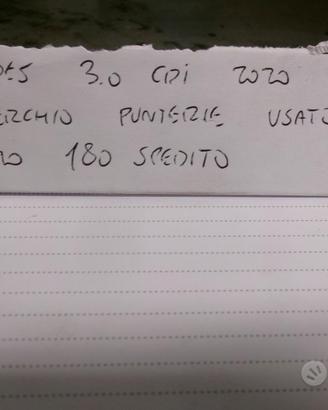 DES 3.0 CDI 2020
ERCHIO PUNTERIE USATO
RO 180 SPEDITO